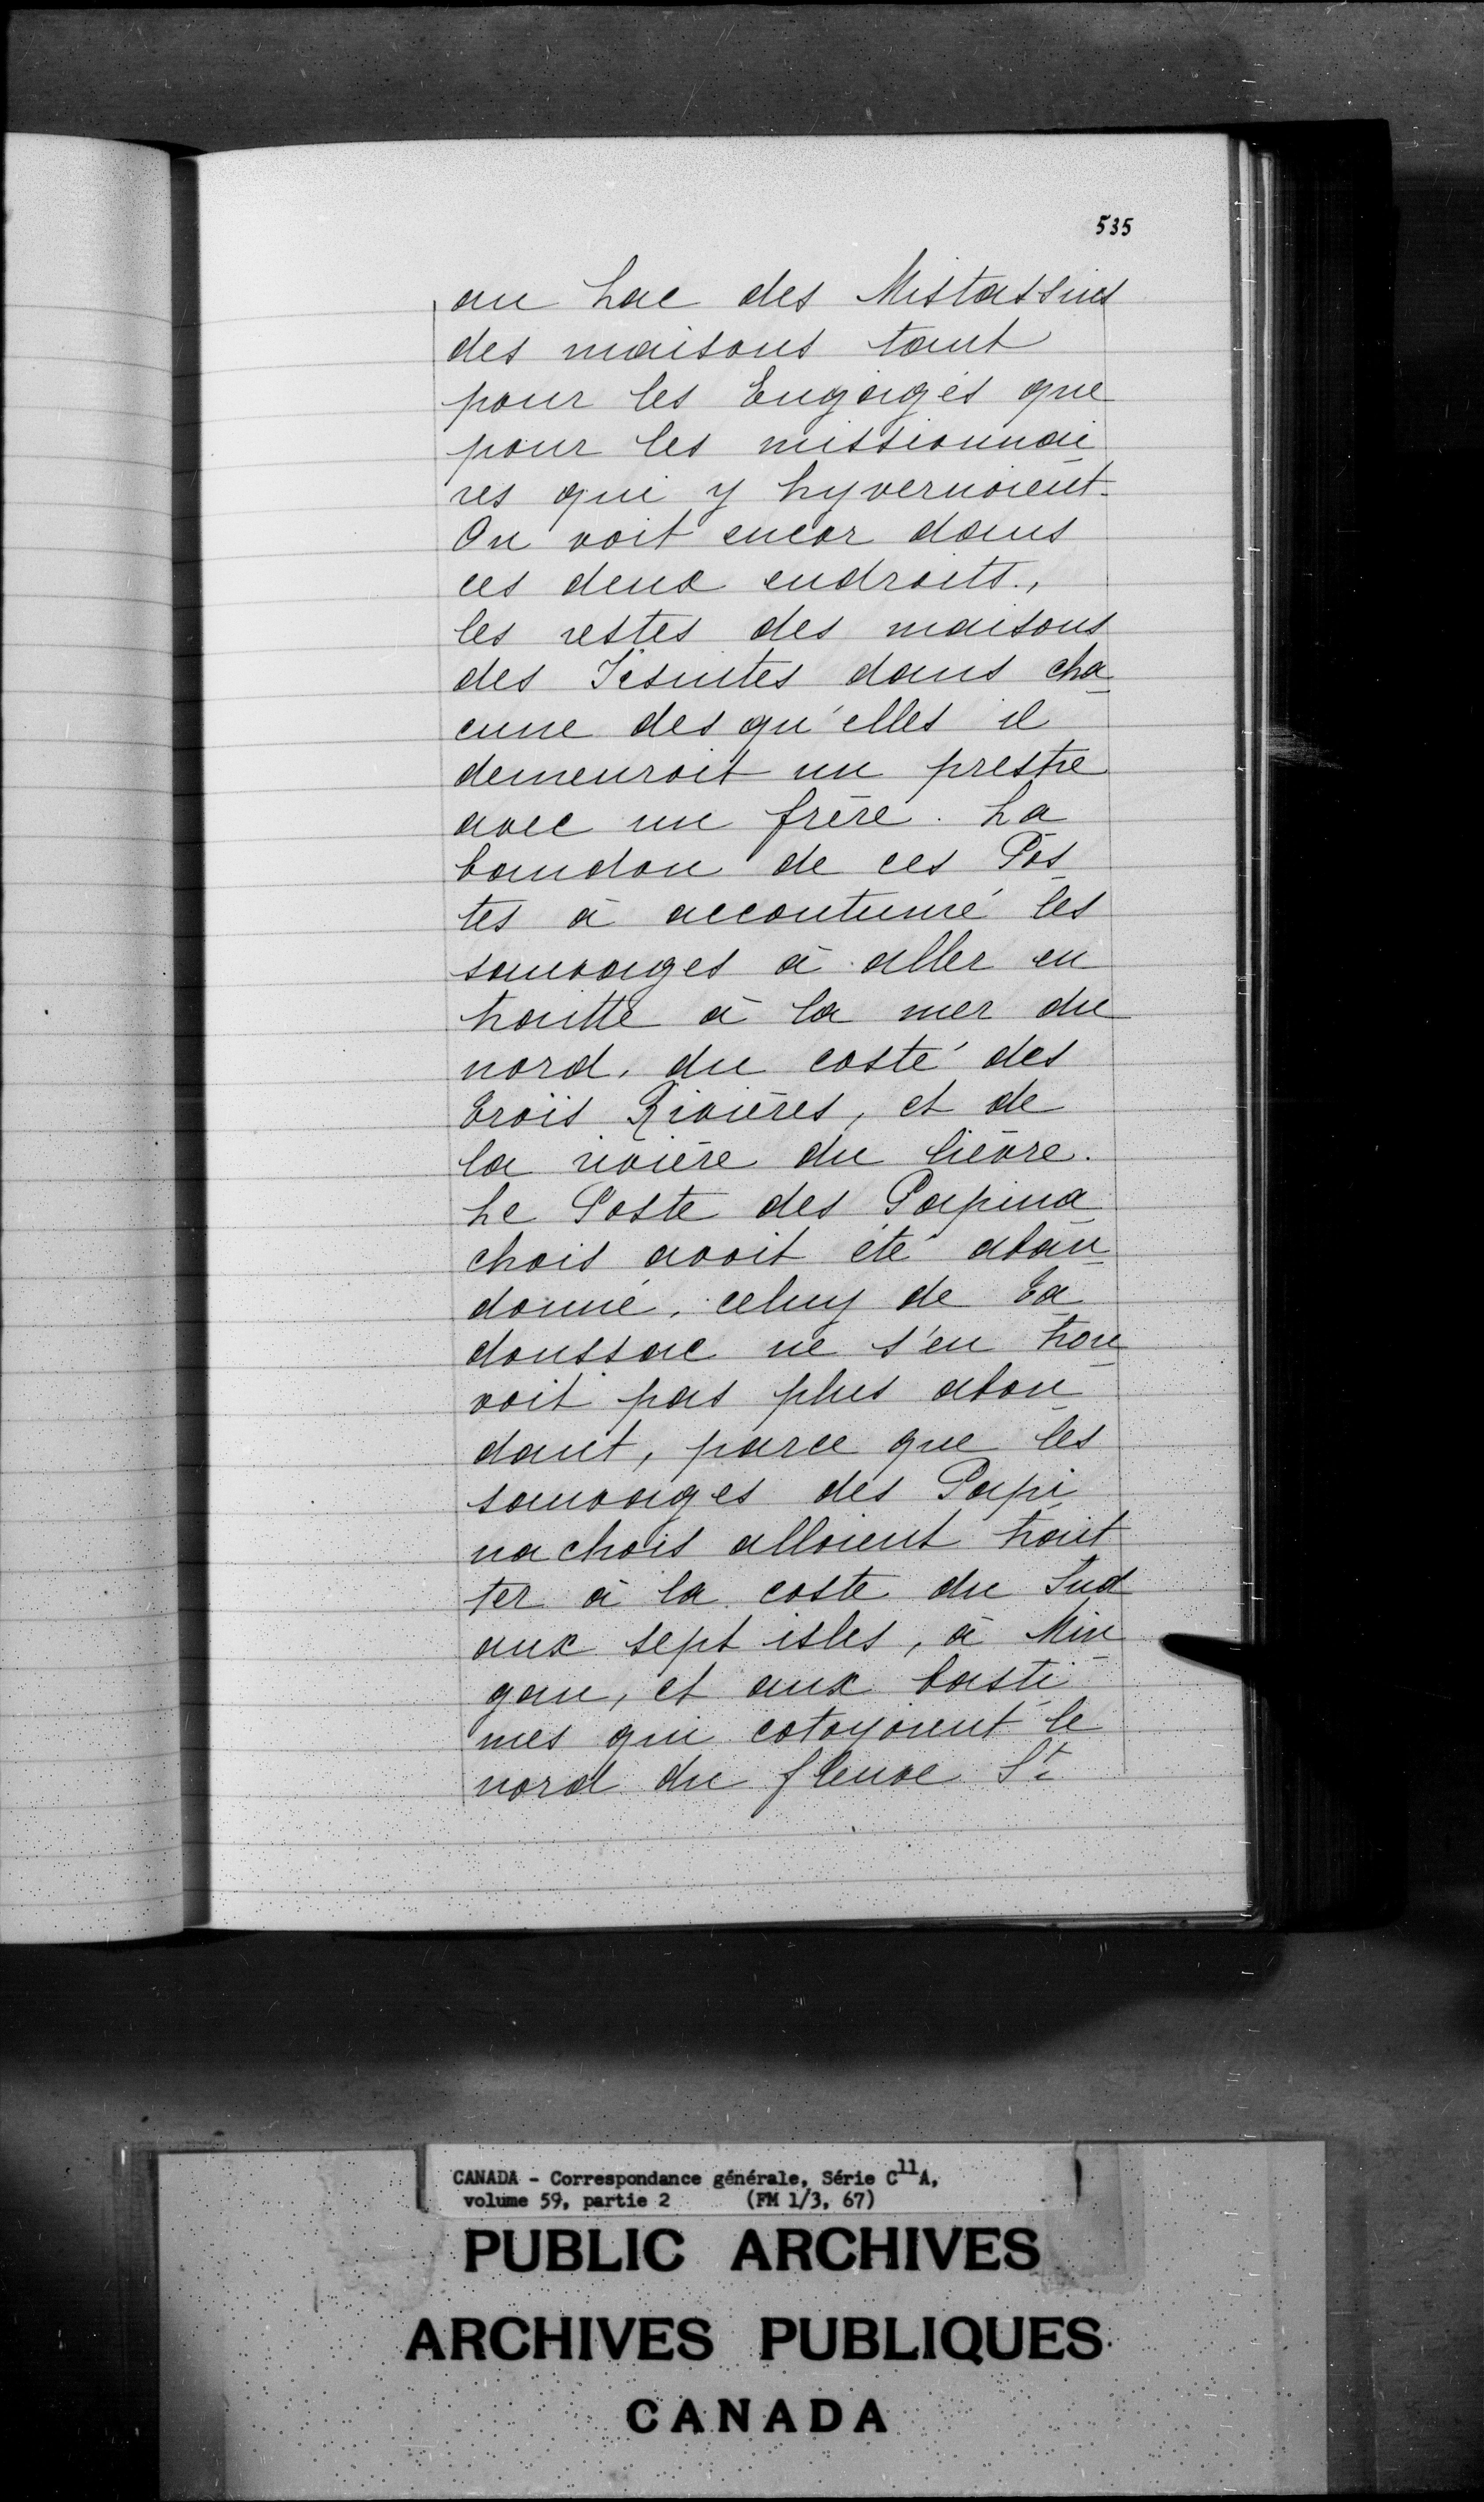 535
au Lac des Mistassins
des maisons tant
pour les Engagés que
pour les missionnai
res qui y hyvernoient.
On voit encor dans
ces deux endroits,
les restes des maisons
des Jesuites dans cha
cune des qu'elles il
demeuroit un prestre
avec un frère. La
bandon de ces Pos
tes à accoutumé les
sauvages à aller en
traitte à la mer du
nord, du costé des
trois Rivières, et de
la rivière du lièvre.
Le Poste des Papina
chois avoit été aban
donné, celuy de Ta
doussac ne s'en trou
voit pas plus abon
dant, parce que les
sauvages des Papi
nachois alloient trait
ter à la coste du Sud
aux sept isles, à Min
gan, et aux basti
mes qui cotoyoient le
nord du fleuve St.
CANADA - Correspondance générale, Série C11A,
volume 59, partie 2 (FM 1/3, 67)
PUBLIC ARCHIVES
ARCHIVES PUBLIQUES
CANADA